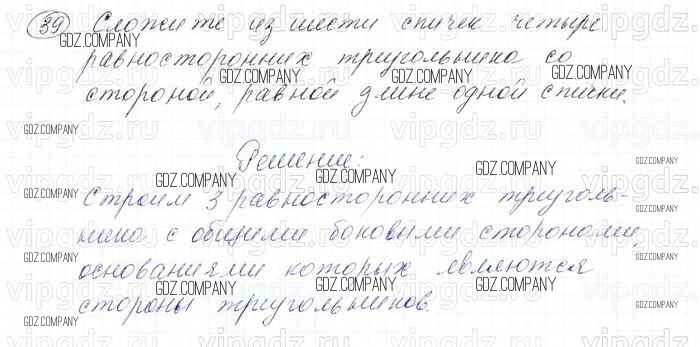 39 Сложите из шести спичек четыре
равносторонних треугольника со
стороной, равной длине одной спички.
Решение:
Строим 3 равносторонних треуголь-
ника с общими боковыми сторонами,
основаниями которых являются
стороны треугольников.
GDZ.COMPANY
vipgdz.ru